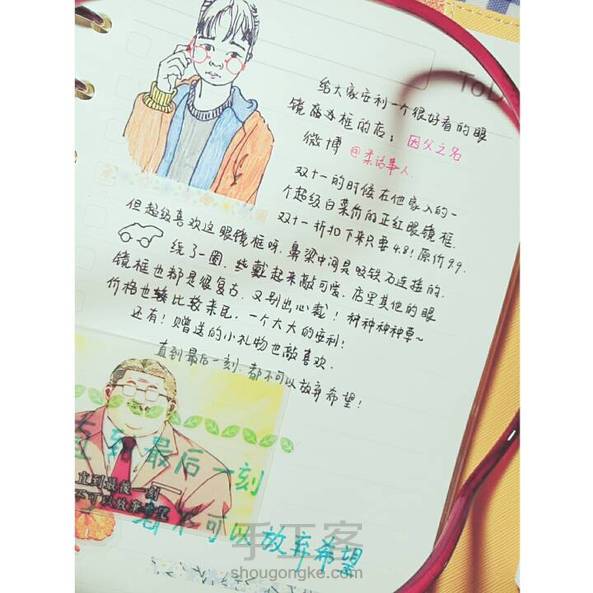 ToD
给大家安利一个很好看的眼
镜商办框的店：因父之名
微博 @柔诘事人
双十一的时候在他家入的一
个超级白菜价的正红眼镜框.
双十一折扣下来只要48！原价99.
但超级喜欢这眼镜框呀.鼻梁中间是吸铁石连接的.
绕了一圈，些戴起来敲可爱.店里其他的眼
镜框也都是很复古.又别出心裁！种种种种草~
价格也比较亲民.一个大大的安利！
还有！赠送的小礼物也敲喜欢.
直到最后一刻.都不可以放弃希望！
直到最后一刻
直到最後一刻
不可以放棄希望
都不可以放弃希望
手工客
shougongke.com